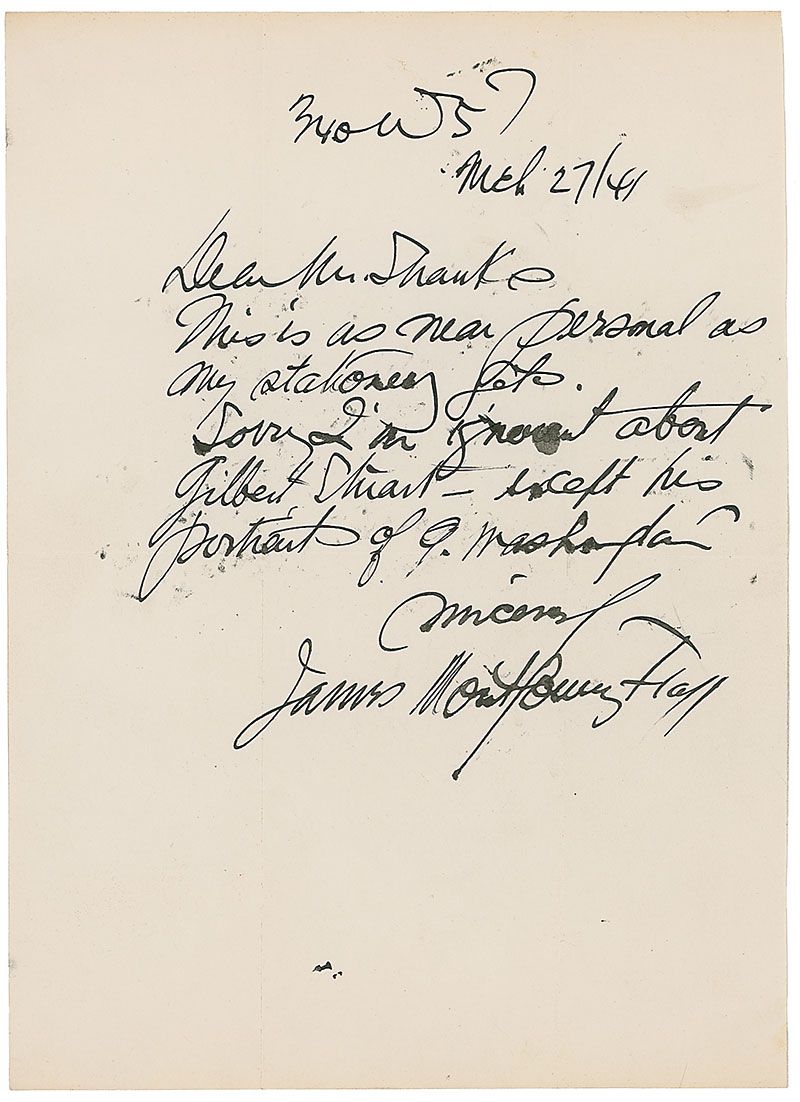 340 W 57
Mch 27/41
Dear Mr. Shanks
This is as near personal as
my stationery gets.
Sorry I'm ignorant about
Gilbert Stuart – except his
portraits of G. Washington
Sincerely
James Montgomery Flagg